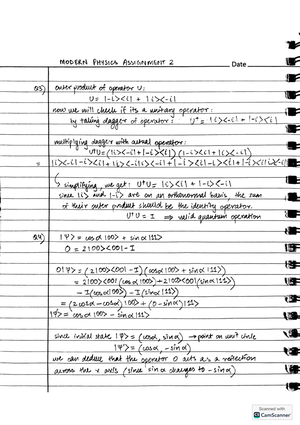 MODERN PHYSICS ASSIGNMENT 2 Date
Q3) outer product of operator U:
U = |-i><i| + |i><-i|
now we will check if its a unitary operator:
by taking dagger of operator: U⁺ = |i><-i| + |-i><i|
multiplying dagger with actual operator:
simplifying, we get: U⁺U = |i><i| + |-i><-i|
since |i> and |-i> are an orthonormal basis the sum
of their outer product should be the identity operator.
U⁺U = I ⇒ valid quantum operation
Q4) |Ψ> = cosα|00> + sinα|11>
O = 2|00><00| - I
O|Ψ> = (2|00><00| - I)(cosα|00> + sinα|11>)
= 2|00><00|(cosα|00>) + 2|00><00|(sinα|11>)
- I(cosα|00>) - I(sinα|11>)
= (2cosα - cosα)|00> + (0 - sinα)|11>
|Ψ> = cosα|00> - sinα|11>
since initial state |Ψ> = (cosα, sinα) → point on unit circle
|Ψ'> = (cosα, -sinα)
we can deduce that the operator O acts as a reflection
across the x axis (since sinα changes to -sinα)
Scanned with
CS CamScanner